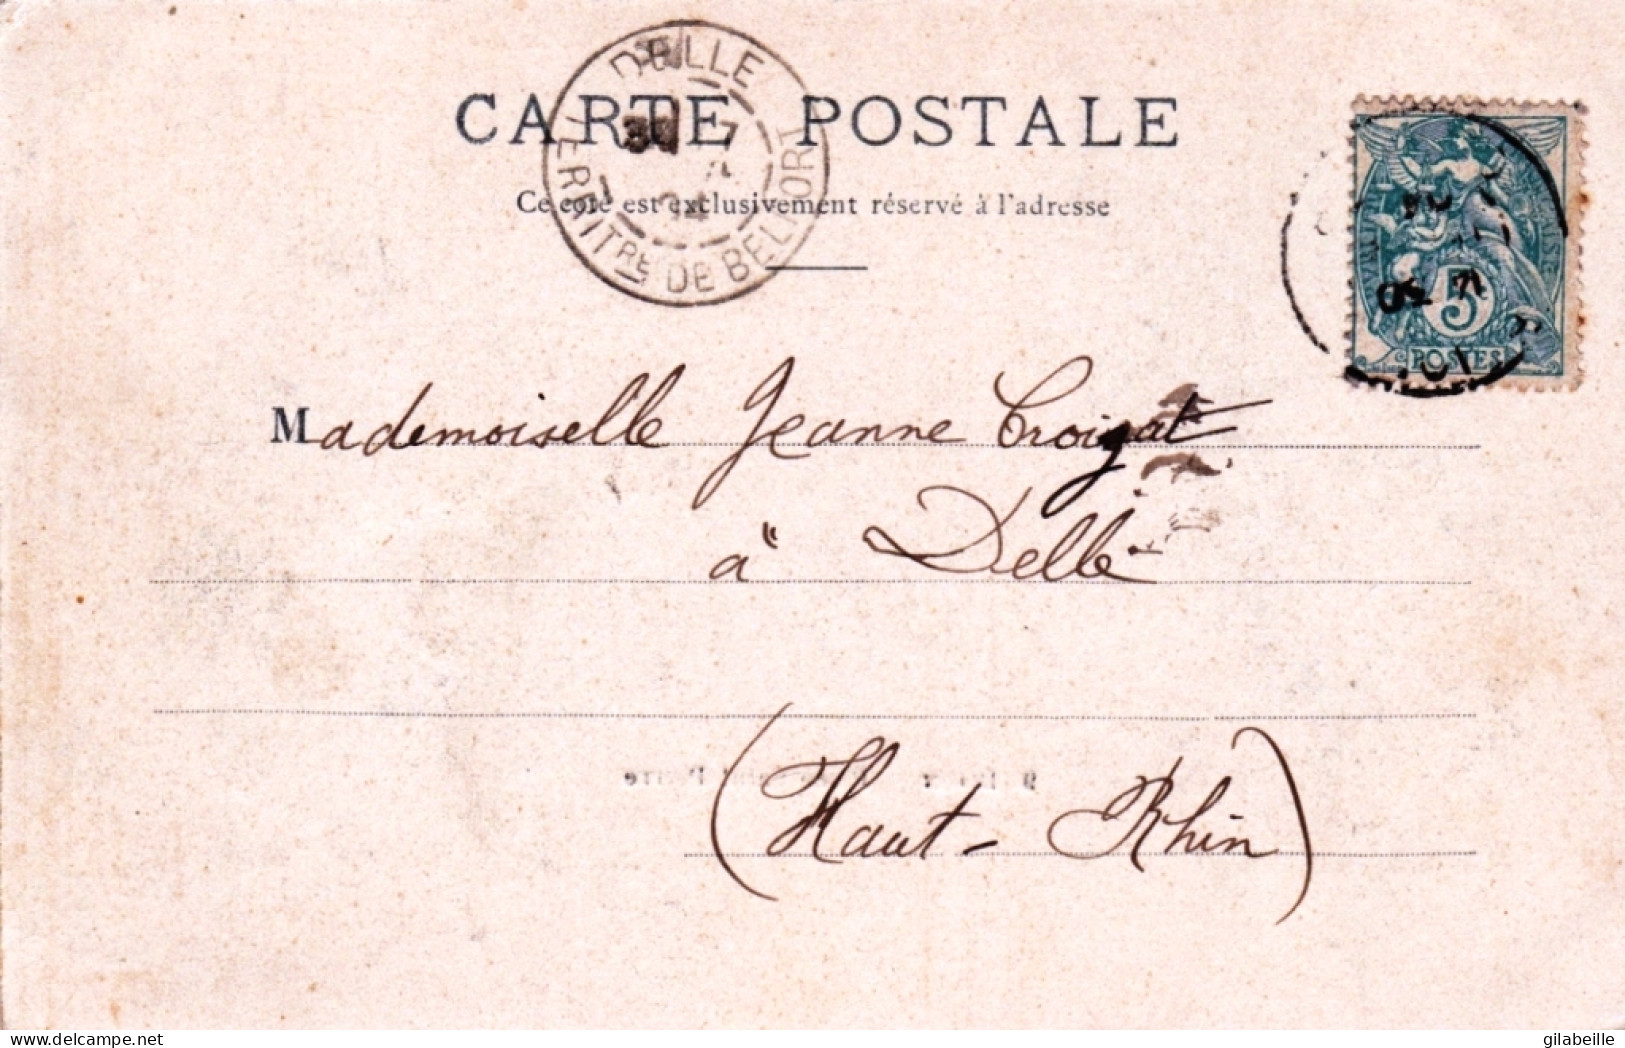 DELLE
TERRIT^RE DE BELFORT
CARTE POSTALE
Ce côté est exclusivement réservé à l'adresse
5
POSTES
Mademoiselle Jeanne Croizat
à Delle
(Haut-Rhin)
delcampe.net
gilabeille